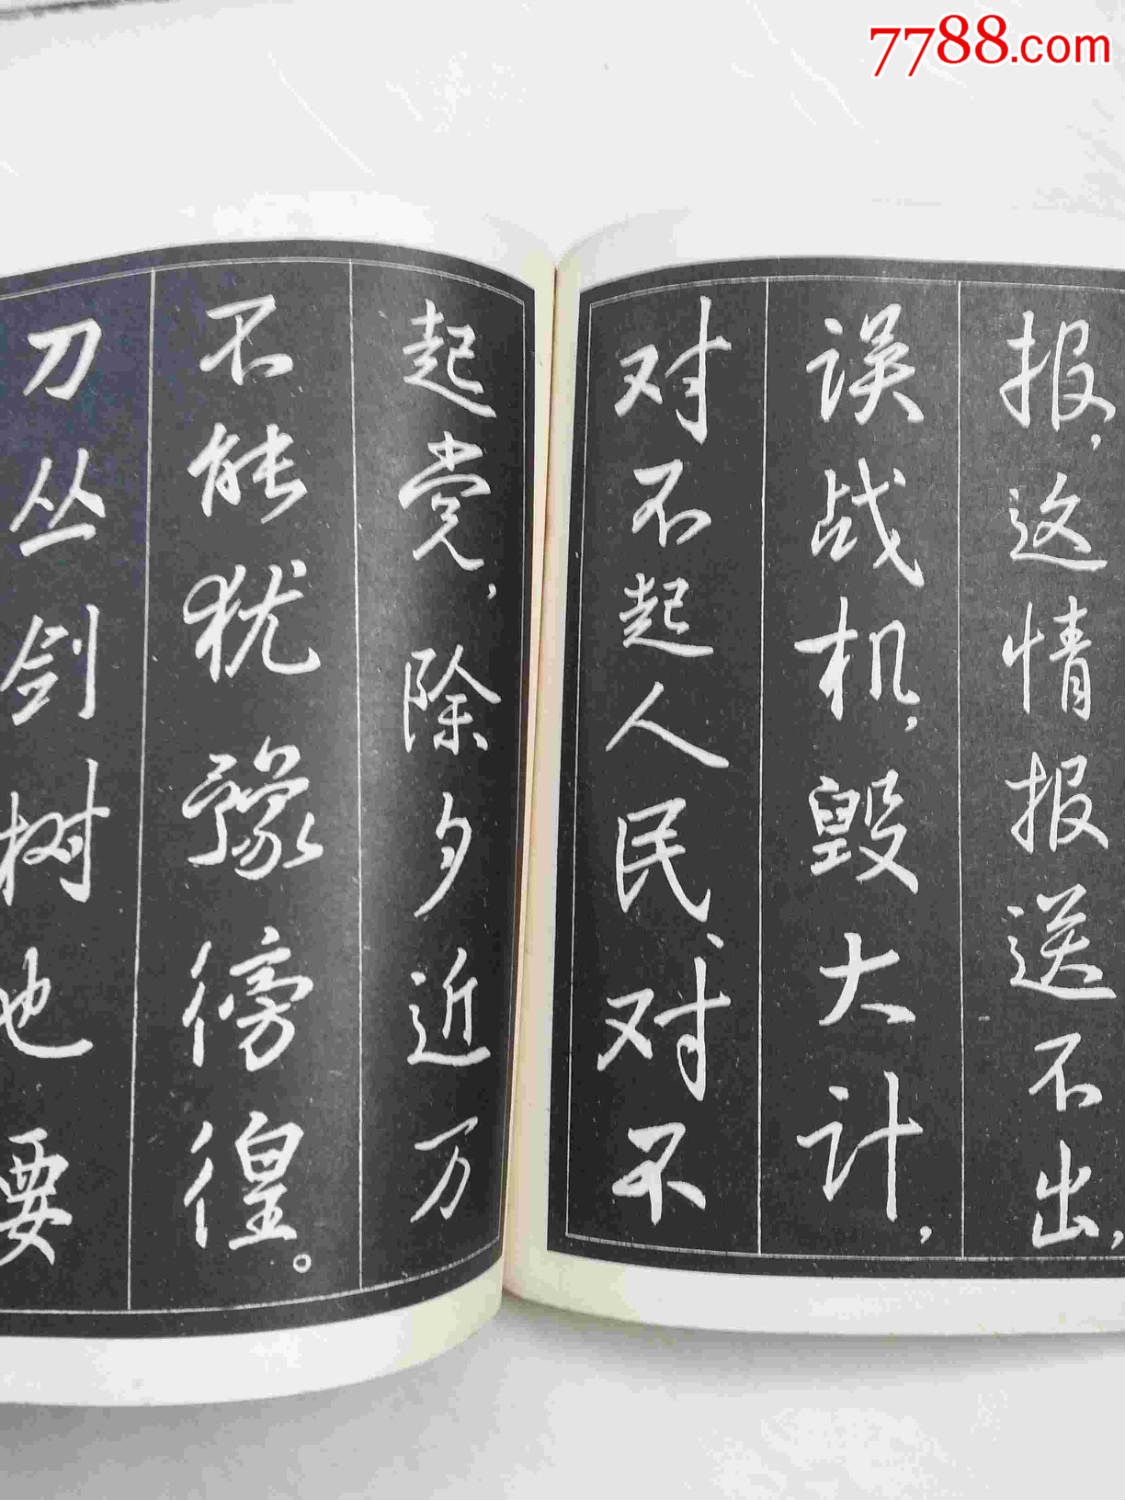 7788.com
报，这情报送不出，
误战机，毁大计，
对不起人民、对不
起党，除夕近万
不能犹豫傍徨。
刀丛剑树也要